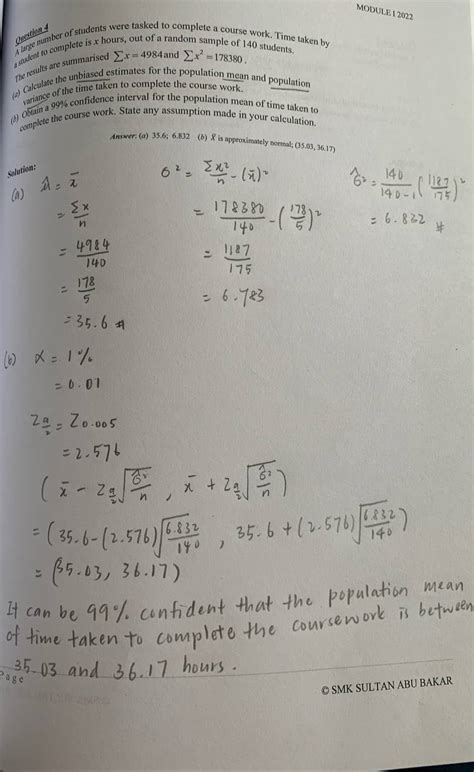 MODULE 1 2022
Question 4
A large number of students were tasked to complete a course work. Time taken by
a student to complete is x hours, out of a random sample of 140 students.
The results are summarised ∑x = 4984 and ∑x² = 178380.
(a) Calculate the unbiased estimates for the population mean and population
variance of the time taken to complete the course work.
(b) Obtain a 99% confidence interval for the population mean of time taken to
complete the course work. State any assumption made in your calculation.
Answer: (a) 35.6; 6.832 (b) X̄ is approximately normal; (35.03, 36.17)
Solution:
(a) μ̂ = x̄
= ∑x/n
= 4984/140
= 178/5
= 35.6 #
σ² = ∑x²/n - (x̄)²
= 178380/140 - (178/5)²
= 1187/175
= 6.783
σ̂² = 140/(140-1) (1187/175)²
= 6.832 #
(b) α = 1%
= 0.01
Zα/2 = Z0.005
= 2.576
(x̄ - Zα/2 √(σ̂²/n) , x̄ + Zα/2 √(σ̂²/n))
= (35.6-(2.576)√(6.832/140) , 35.6+(2.576)√(6.832/140))
= (35.03, 36.17)
It can be 99% confident that the population mean
of time taken to complete the coursework is between
35.03 and 36.17 hours.
Page
© SMK SULTAN ABU BAKAR